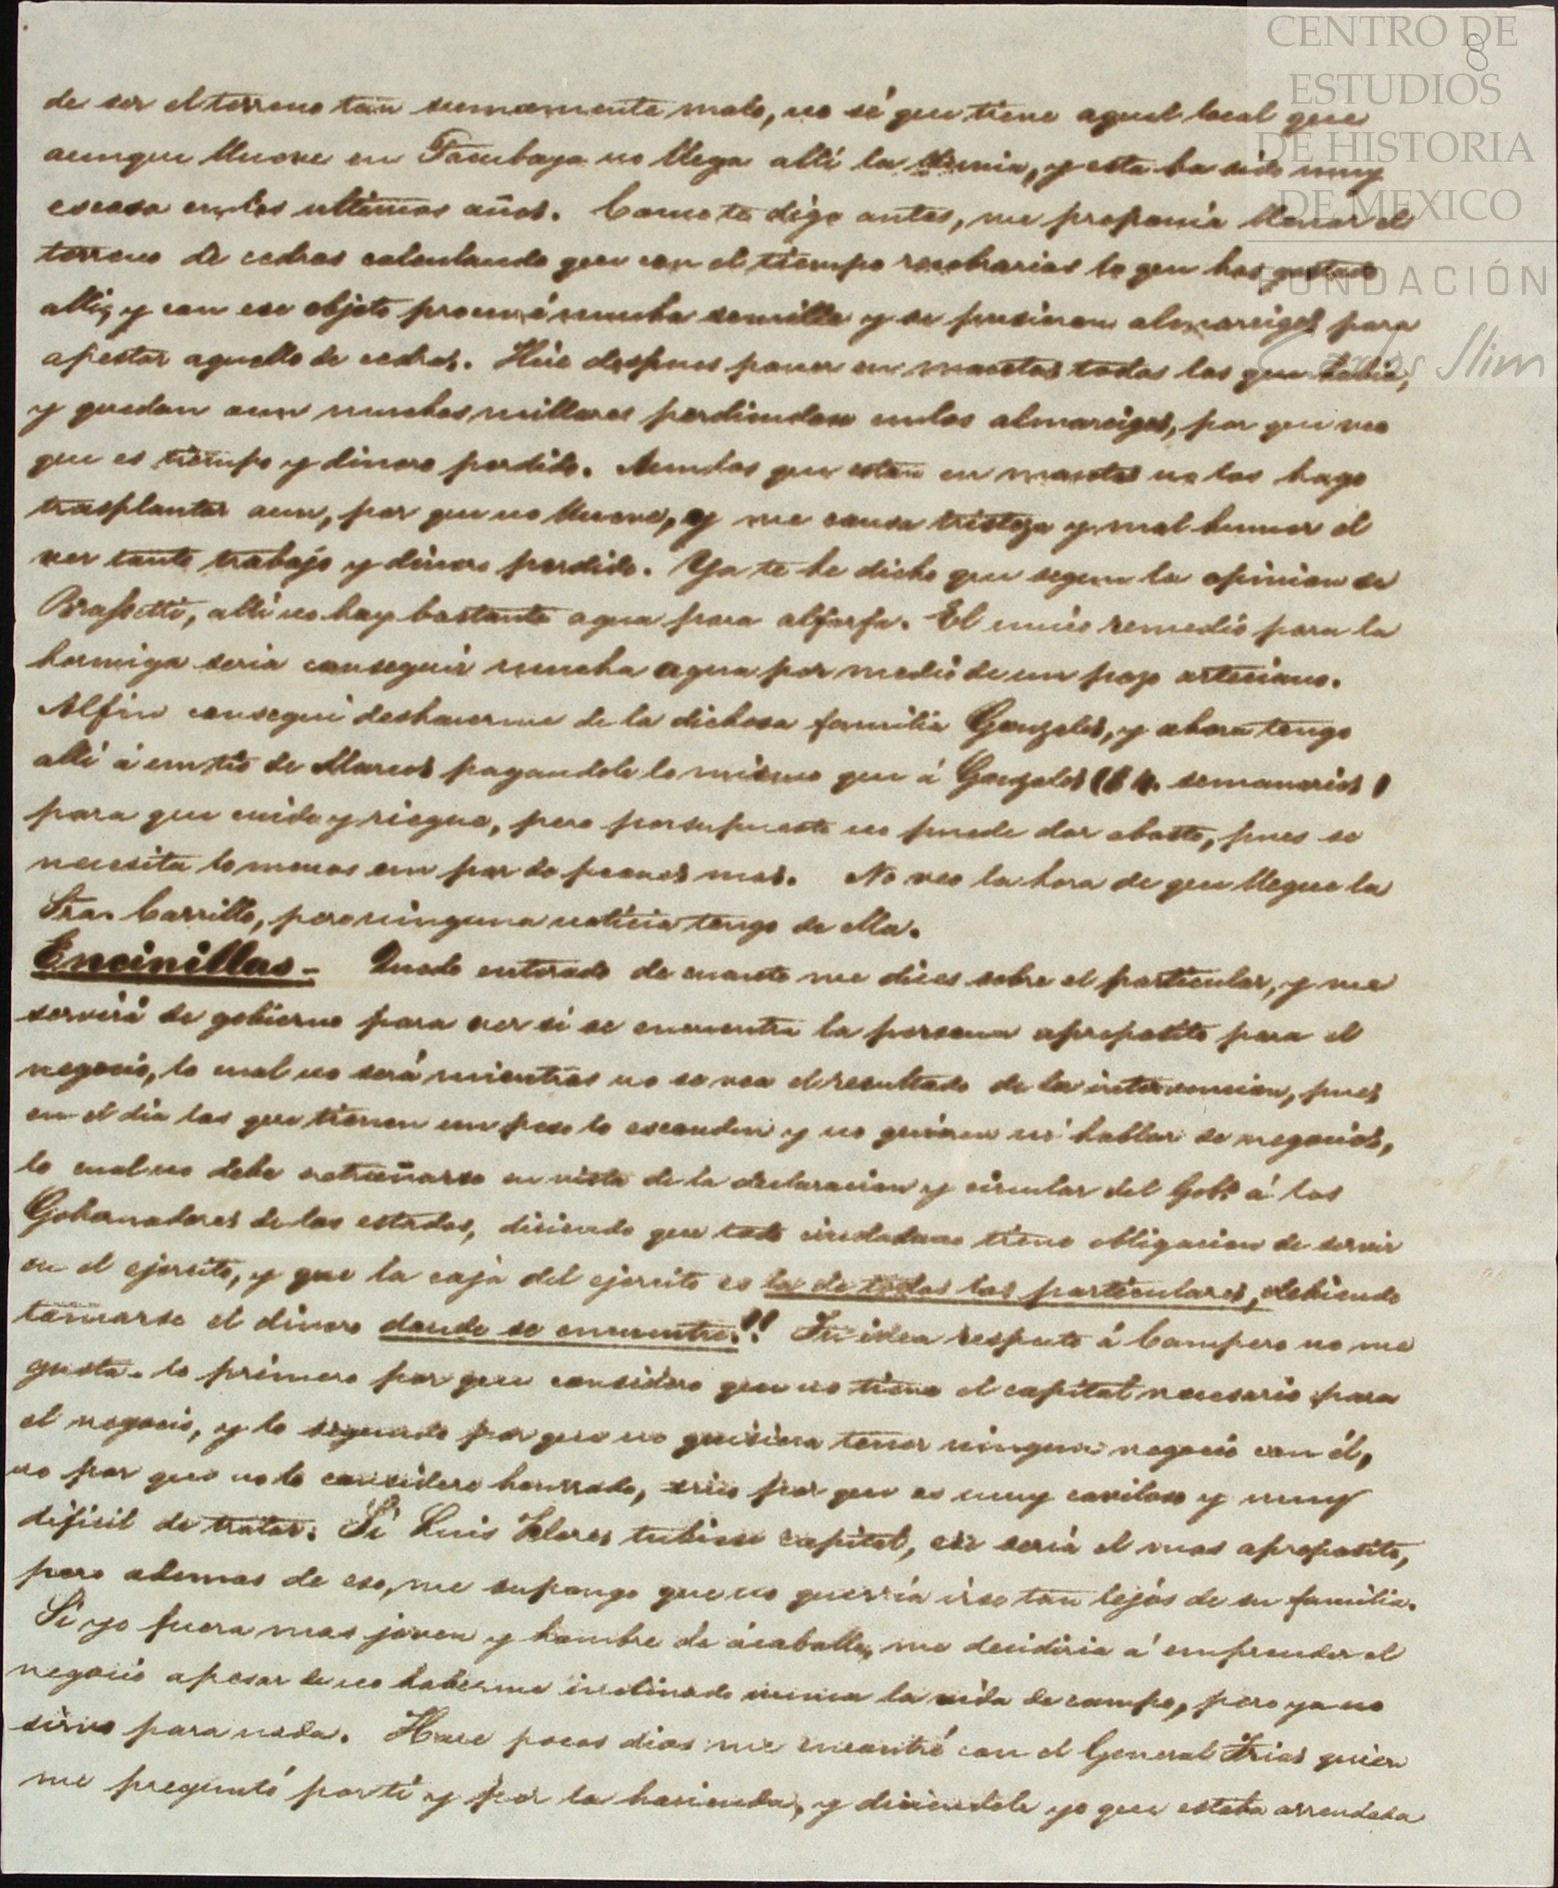 CENTRO DE
ESTUDIOS
DE HISTORIA
DE MEXICO
FUNDACIÓN
Carlos Slim
8
de ser el terreno tan sumamente malo, no sé que tiene aquel local que
aunque llueve en Tacubaya no llega allí la lluvia, y esta ha sido muy
escasa en los ultimos años. Como te digo antes, me proponia llenar el
terreno de cedros calculando que con el tiempo recobrarias lo que has gastado
alli, y con ese objeto procuré mucha semilla y se pusieron almacigos para
apestar aquello de cedros. Hice despues poner en macetas todos los que habia,
y quedan aun muchos millares perdiendose en los almacigos, por que veo
que es tiempo y dinero perdido. Aun los que estan en macetas no los hago
trasplantar aun, por que no llueve, y me causa tristeza y mal humor el
ver tanto trabajo y dinero perdido. Ya te he dicho que segun la opinion de
Brassetti, allí no hay bastante agua para alfarfa. El unico remedio para la
hormiga seria conseguir mucha agua por medio de un pozo artesiano.
Al fin conseguí deshacerme de la dichosa familia Gonzales, y ahora tengo
allí á un tio de Marcos pagandole lo mismo que á Gonzales ($ 4. semanarios)
para que cuide y riegue, pero por supuesto no puede dar abasto, pues se
necesita lo menos un par de peones mas. No veo la hora de que llegue la
Sra. Carrillo, pero ninguna noticia tengo de ella.
Encinillas- Quedo enterado de cuanto me dices sobre el particular, y me
servirá de gobierno para ver si se encuentra la persona aproposito para el
negocio, lo cual no será mientras no se vea el resultado de la intervencion, pues
en el dia los que tienen un peso lo esconden y no quieren ni hablar de negocios,
lo cual no debe estrañarse en vista de la declaracion y circular del Gobo. á los
Gobernadores de los estados, diciendo que todo ciudadano tiene obligacion de servir
en el ejercito, y que la caja del ejercito es la de todos los particulares, debiendo
tomarse el dinero donde se encuentre!! Tu idea respecto á Campero no me
gusta. lo primero por que considero que no tiene el capital necesario para
el negocio, y lo segundo por que no quisiera tener ningun negocio con él,
no por que no lo considere honrrado, sino por que es muy caviloso y muy
dificil de tratar. Si Luis Flores tubiese capital, ese seria el mas aproposito,
pero ademas de eso, me supongo que no querría irse tan lejos de su familia.
Si yo fuera mas joven y hombre de ácaballo, me decidiria á emprender el
negocio apesar de no haberme inclinado nunca la vida de campo, pero ya no
sirvo para nada. Hace pocos dias me encontré con el General Frias quien
me preguntó por ti y por la hacienda, y diciendole yo que estaba arrendada